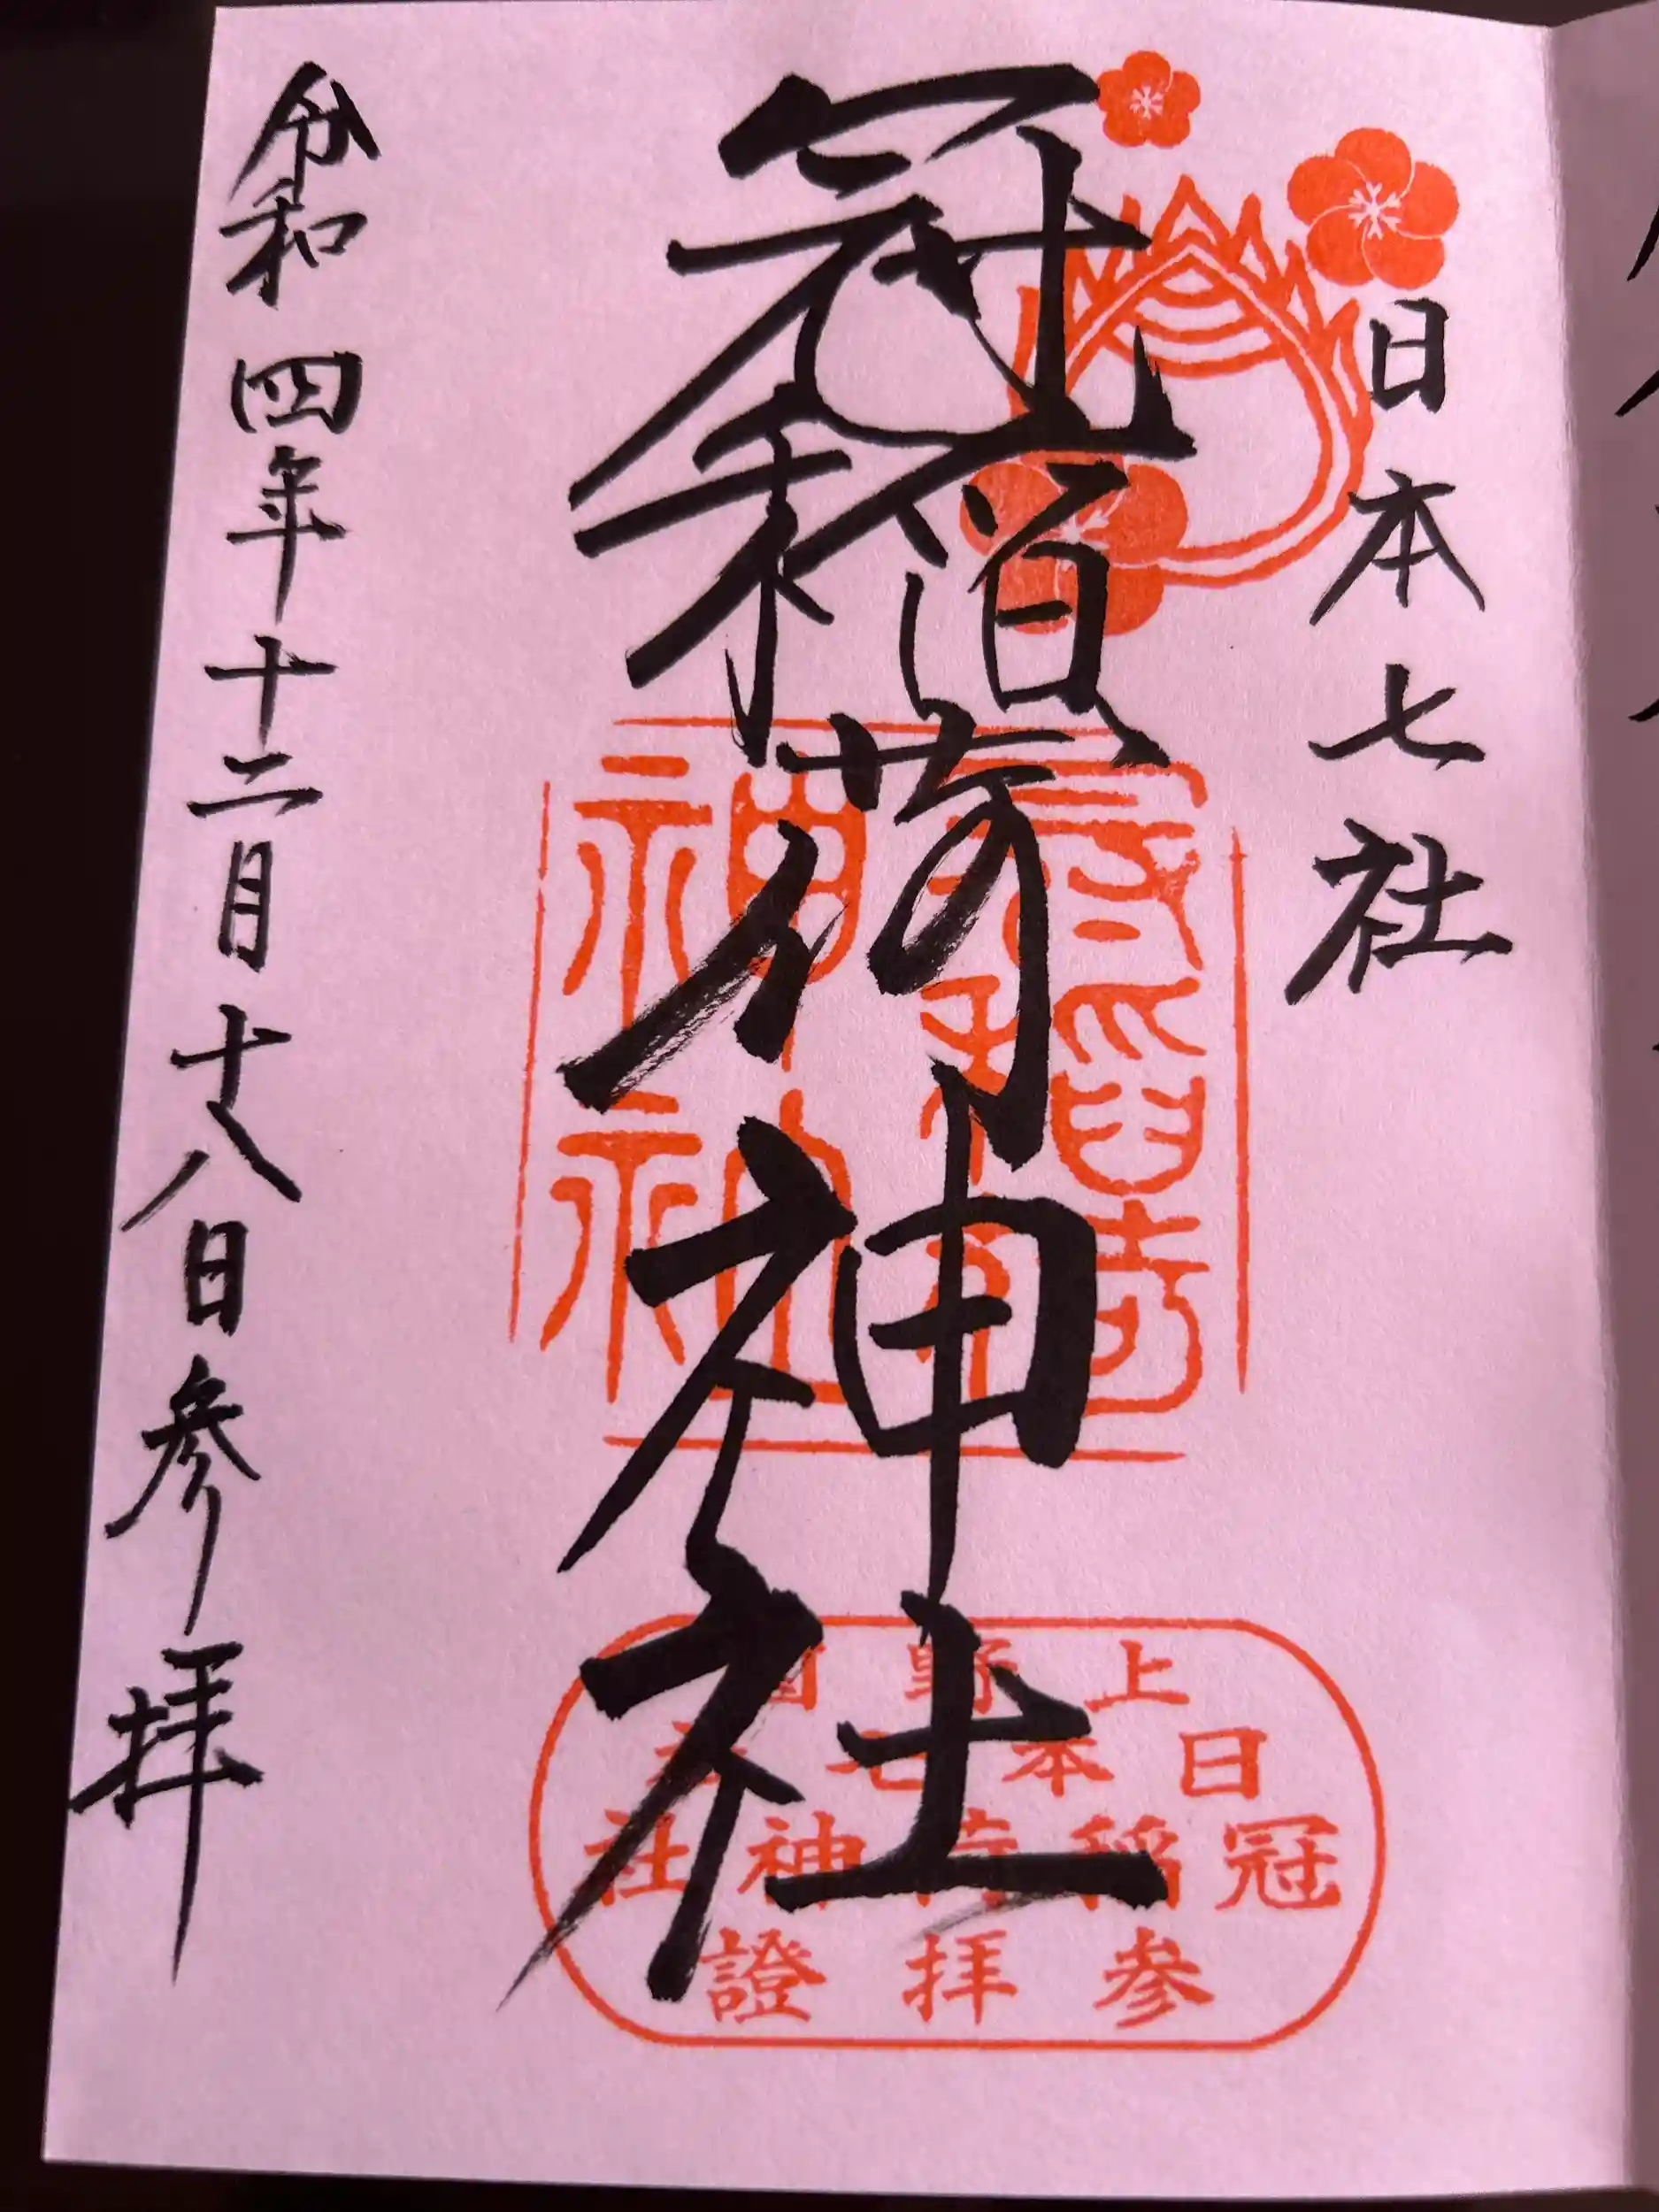 日本七社
冠稲荷神社
令和四年十二月十八日参拝
神社
上野国
日本七社
冠稲荷神社
参拝證